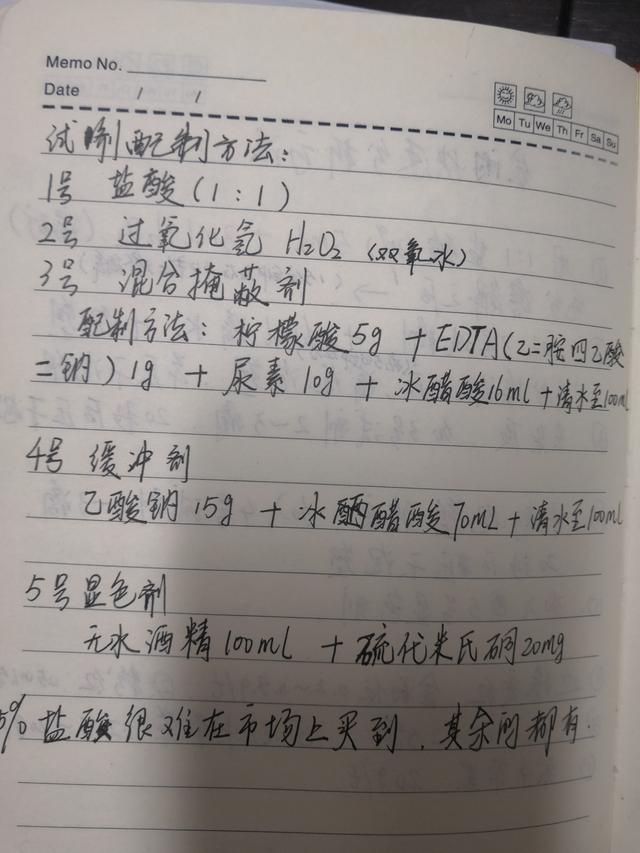 Memo No.
Date / /
Mo Tu We Th Fr Sa Su
试剂配制方法：
1号 盐酸（1：1）
2号 过氧化氢 H2O2（双氧水）
3号 混合掩蔽剂
配制方法：柠檬酸5g + EDTA（乙二胺四乙酸
二钠）1g + 尿素10g + 冰醋酸16ml + 清水至100ml
4号 缓冲剂
乙酸钠15g + 冰醋酸70mL + 清水至100ml
5号显色剂
无水酒精100ml + 硫代米氏酮20mg
5% 盐酸很难在市场上买到，其余的都有.